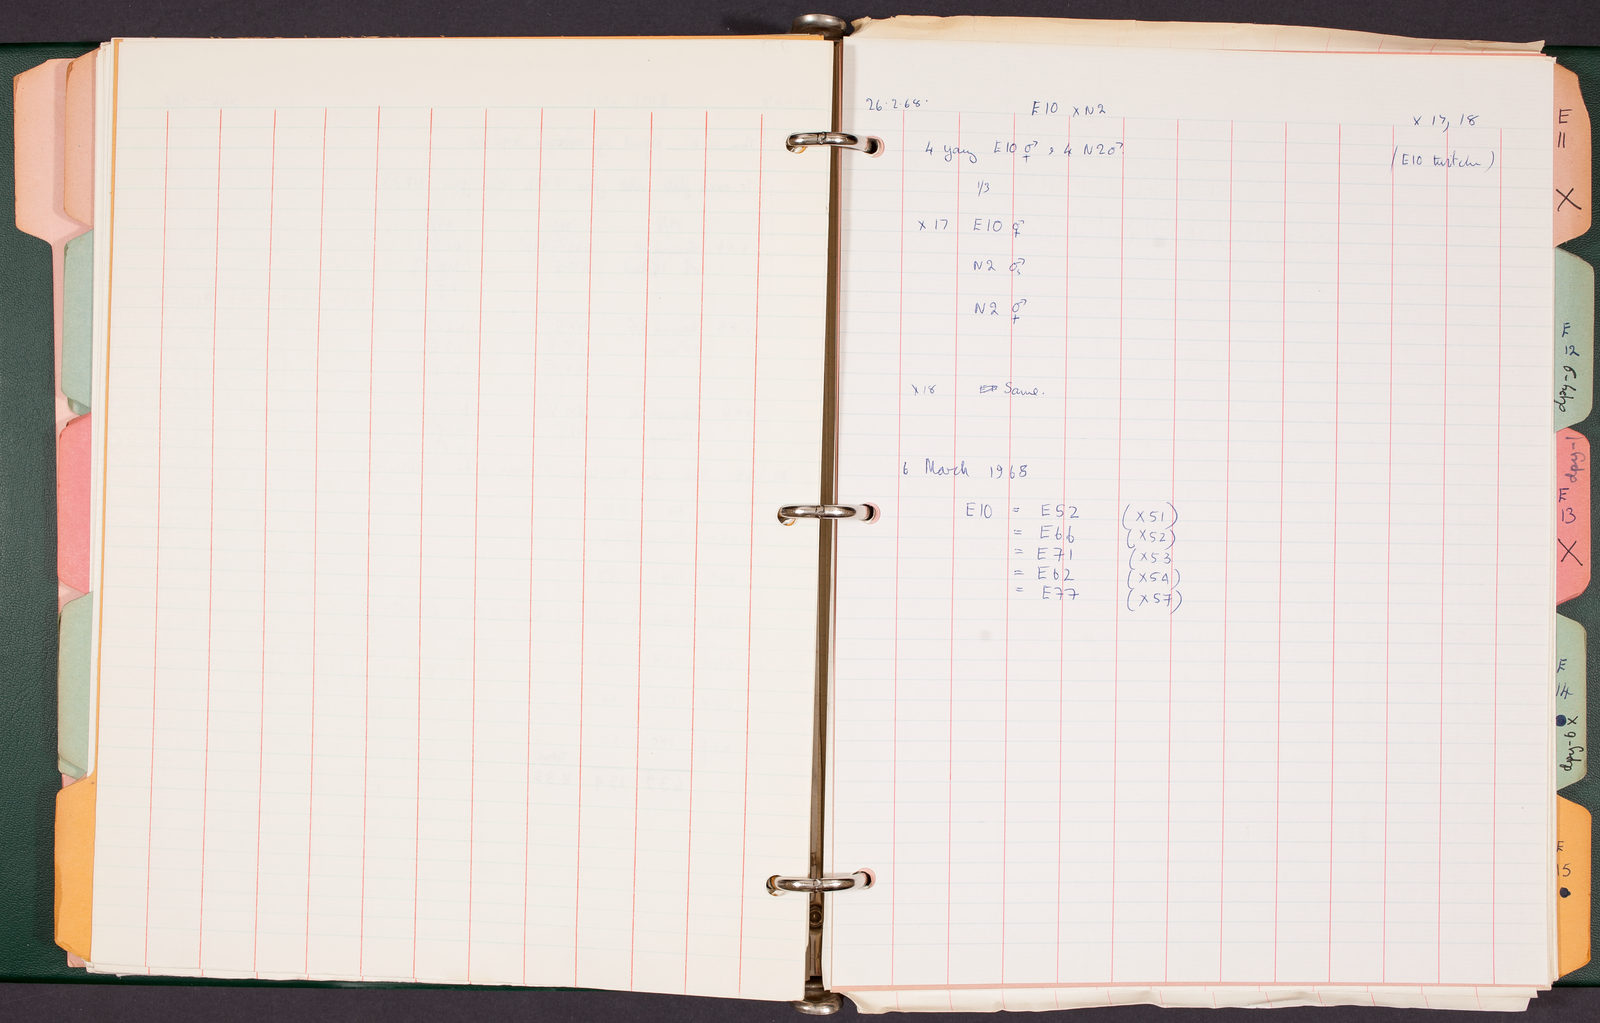 26.2.68.
E10 x N2
x 17, 18
(E10 twitcher)
4 young E10 ⚥, 4 N2 ♂
1/3
x 17 E10 ⚥
N2 ♂
N2 ⚥
x 18 Same.
6 March 1968
E10 = E52 (x51)
= E66 (x52)
= E71 (x53
= E62 (x54)
= E77 (x57)
E
11
X
E
12
dpy-9
dpy-1
E
13
X
E
14
dpy-6 X
E
15